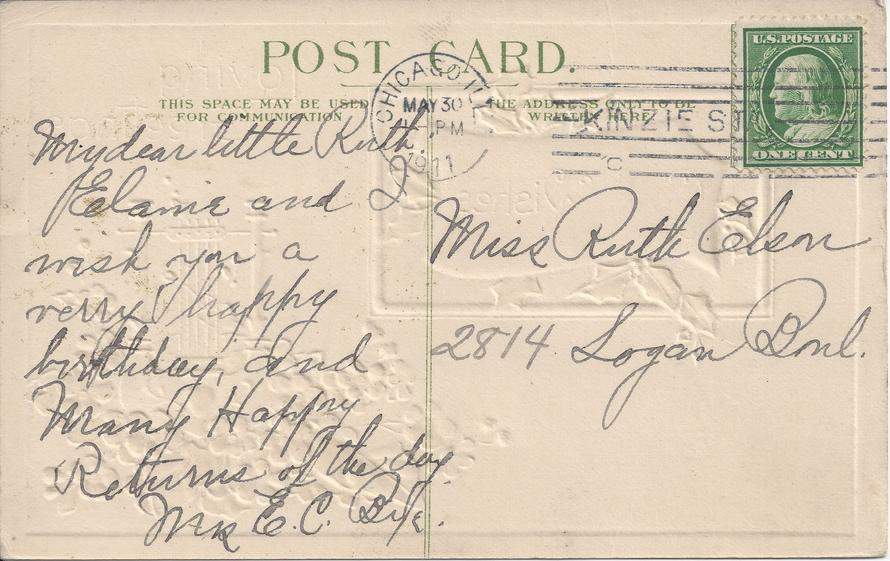 POST CARD.
THIS SPACE MAY BE USED
FOR COMMUNICATION
THE ADDRESS ONLY TO BE
WRITTEN HERE
CHICAGO ILL
MAY 30
PM
1911
KINZIE ST
C
U.S. POSTAGE
ONE CENT
My dear little Ruth.
Elaine and I
wish you a
verry happy
birthday, and
Many Happy
Returns of the day
E. C.
Miss Ruth Elson
2814 Logan Boul.